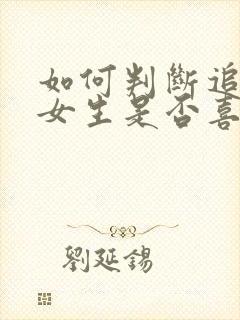 如何判斷追
女生是否喜
劉延錫